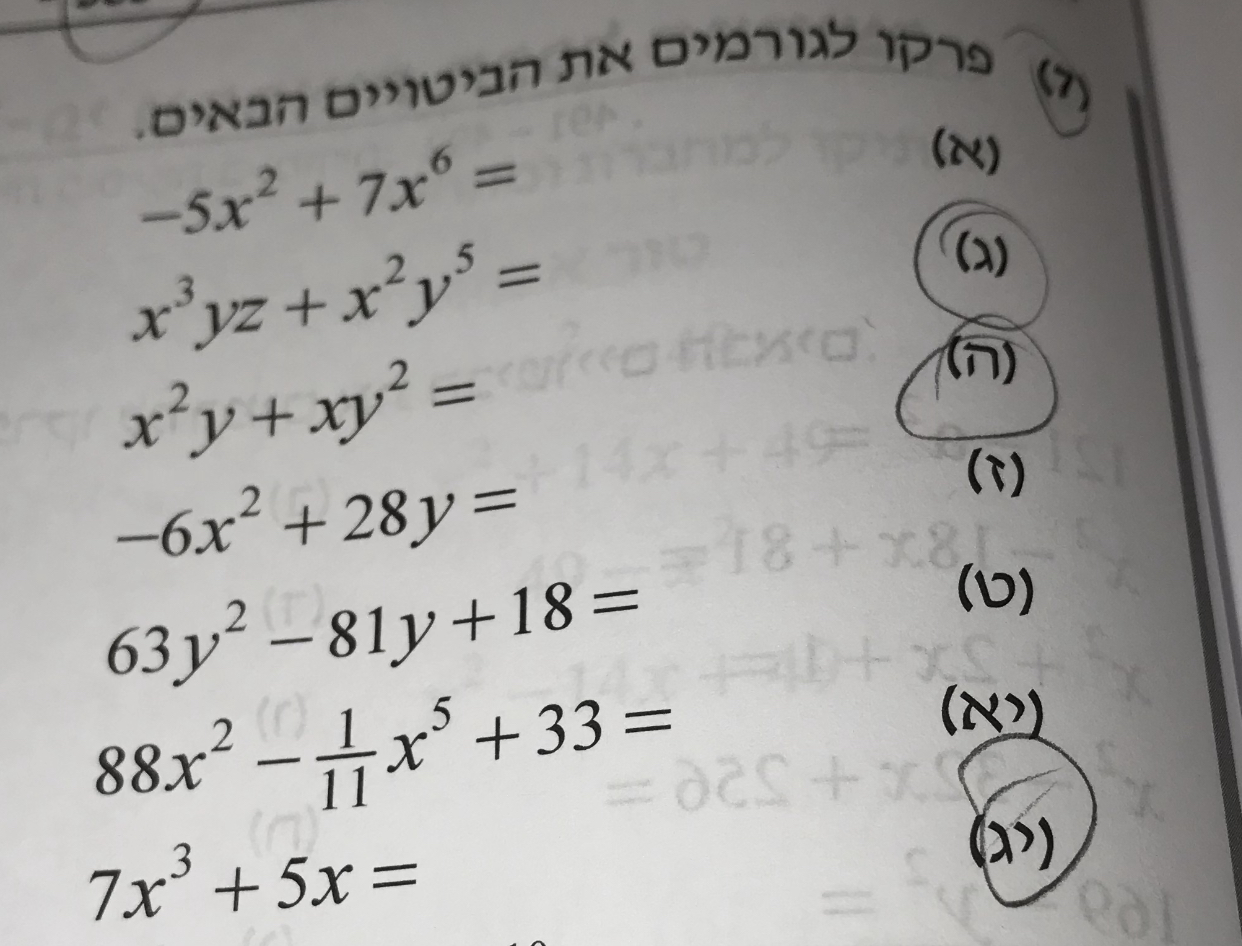 (7) פרקו לגורמים את הביטויים הבאים.
(א) -5x² + 7x⁶ =
(ג) x³yz + x²y⁵ =
(ה) x²y + xy² =
(ז) -6x² + 28y =
(ט) 63y² - 81y + 18 =
(יא) 88x² - 1/11 x⁵ + 33 =
(יג) 7x³ + 5x =